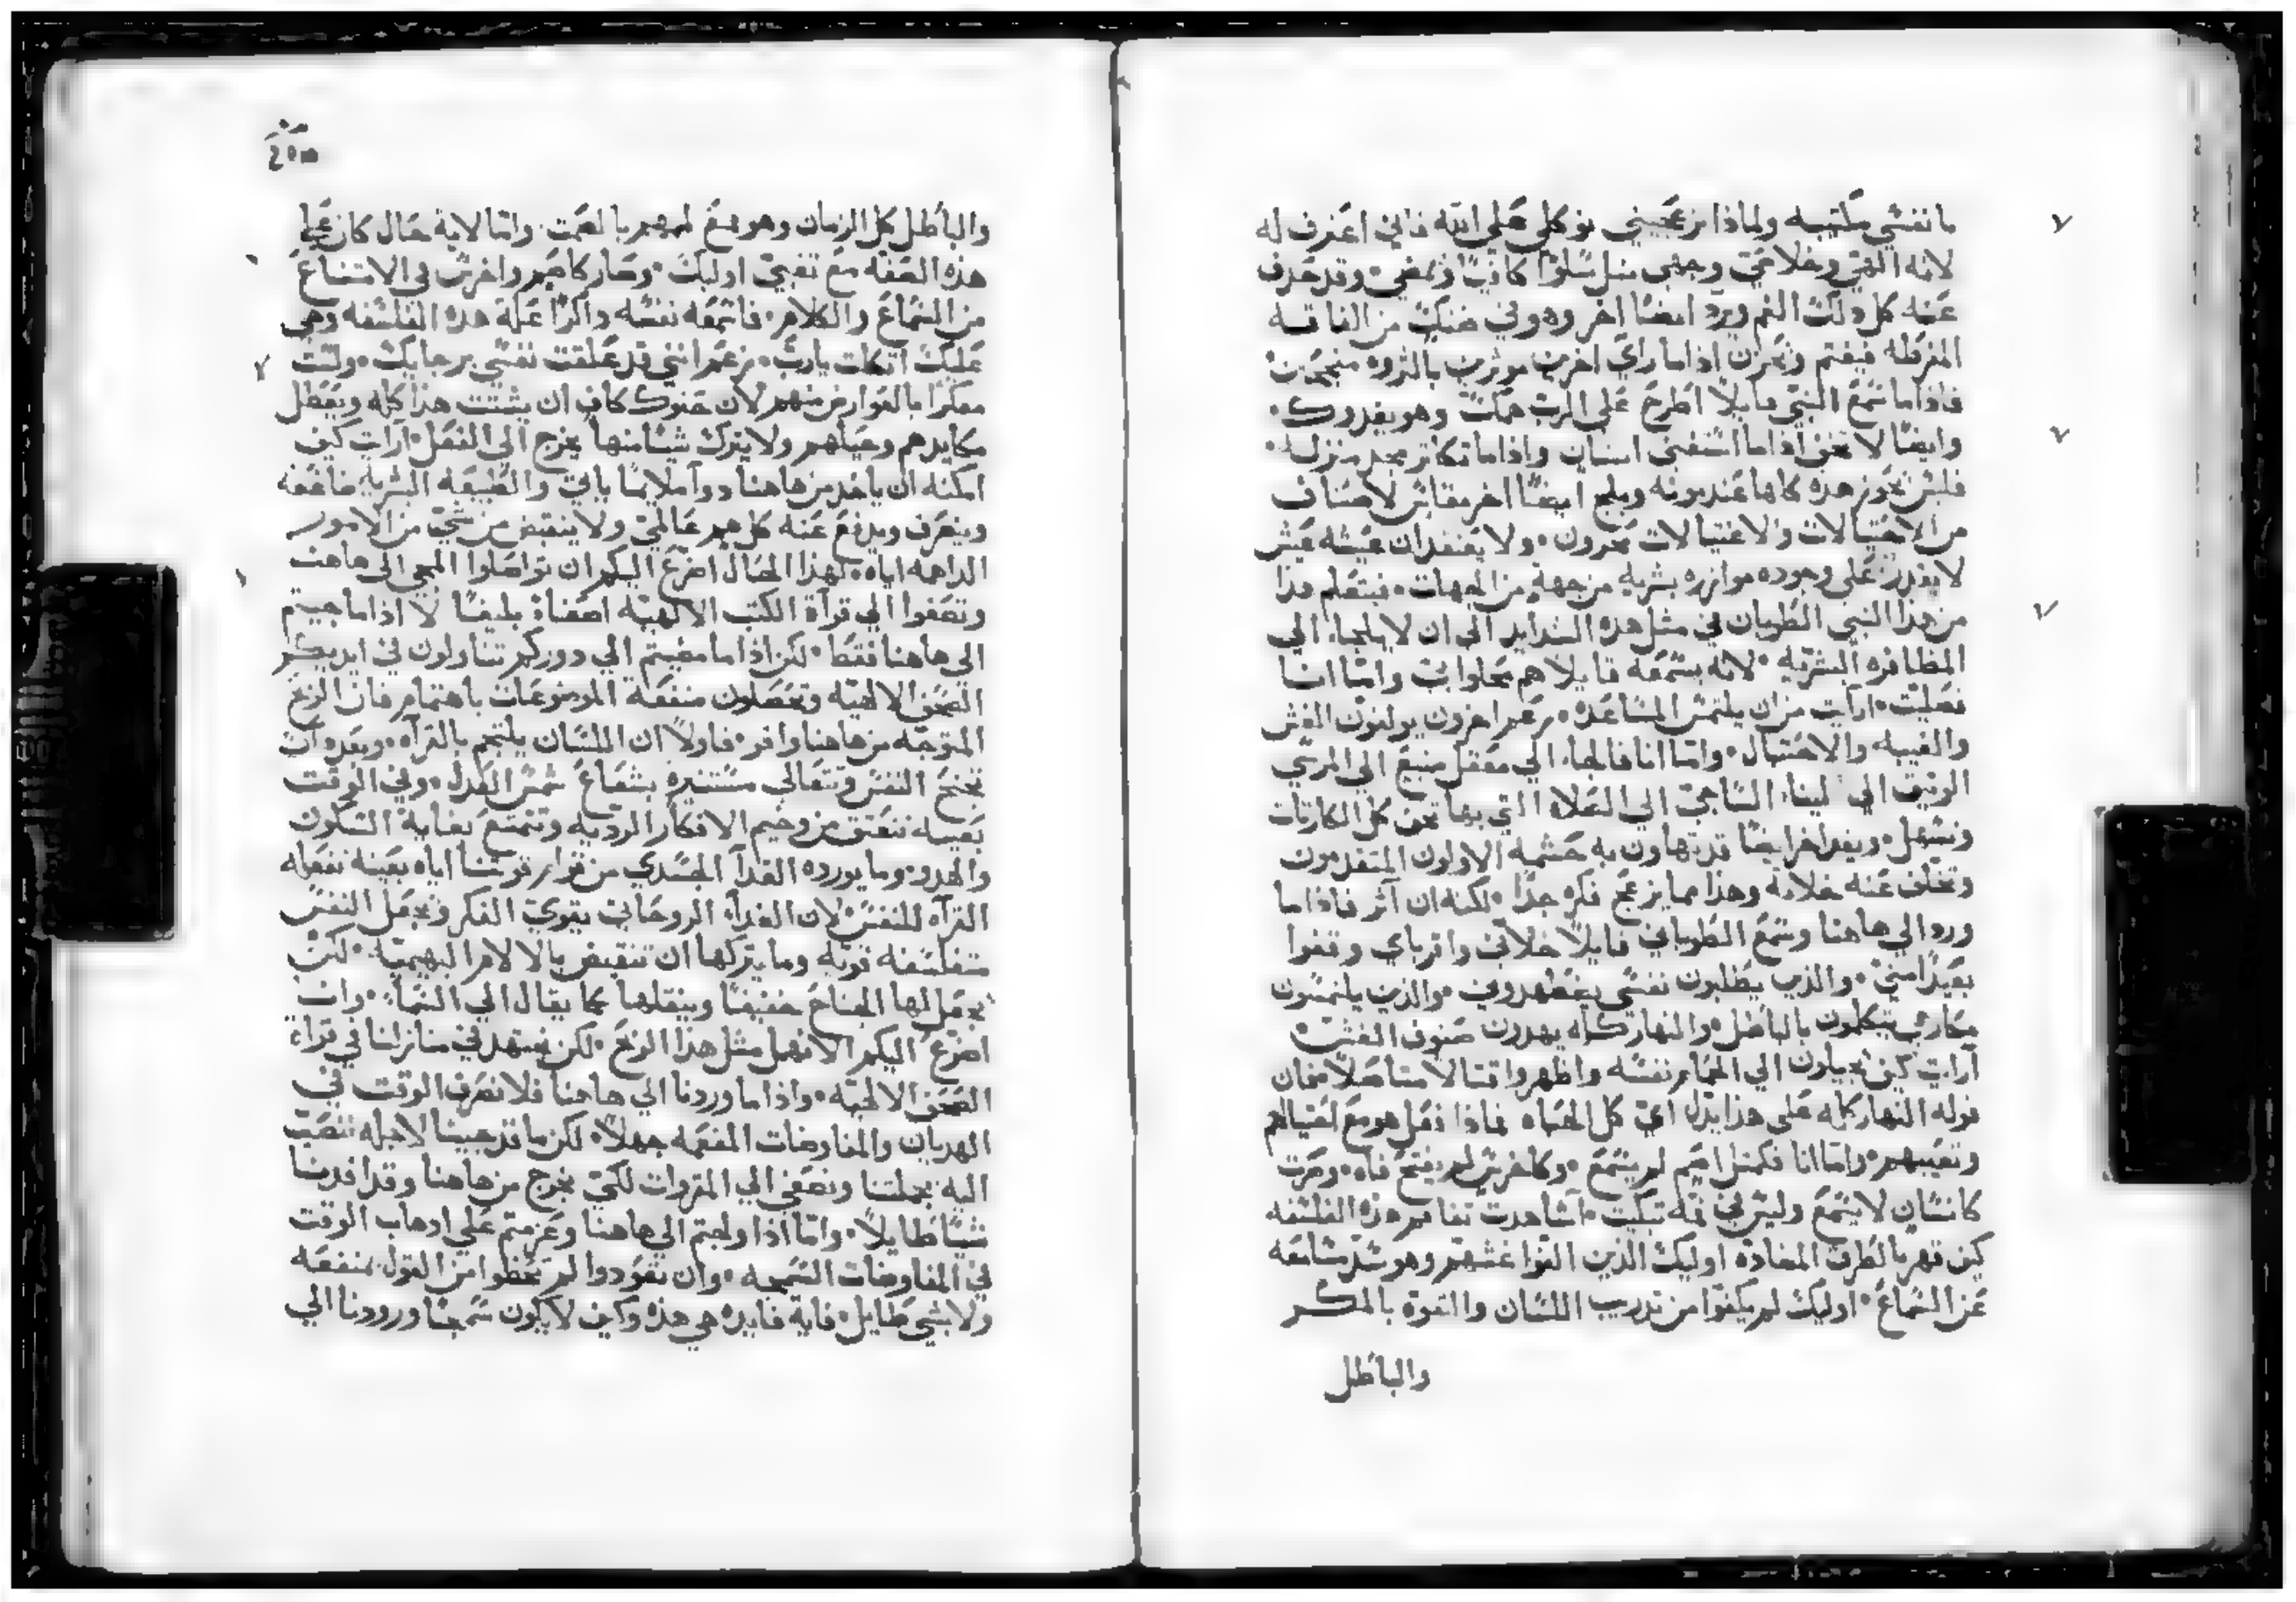 ما نفسي مكتيبه ولماذا تزعجيني توكلي علي الله فاني اعترف له
لانه الهي وخلاصي وجهي مثل سلوا كافيا ومضي وقد حذف
عنه كل ذلك الغم ويرد ايضا اخر وهو في ضنك من الفاقه
المفرطه فيغتم ويحزن اذا ما راي اخرين موثرين بالثروه متبجحين
فاذا ما سمع النبي قايلا اطرح علي الرب همك وهو يغدوك
وايضا لا تخف اذا ما استغنى انسان واذا ما تكاثر مجد منزله
فليس تجوز هذه كلها عند موته ويلج ايضا اخر يقاسي لاصناف
من الاحتيالات والاغتيالات محزون ولا يعتقد ان عيشه عيش
لا يقدر علي وجوده موازره بشريه من جهة من الجهات فيتعلم هذا
من هذا النبي الطوبان في مثل هذه الشدايد الي ان لا يلجاء الي
المظافره البشريه لانه يسمعه قايلا هم محلوا بي واما انا
فصليت ارايت من اين يلتمس المساعده زعم اخرون يولفون الغش
والغيبه والاحتيال واما انا فالجاء الي معقل منيع الي المرسي
الوثيق الي لينا الساجي الي الصلاه التي بها تخف كل الكارثات
وتسهل ويفد اخر ايضا قد تهاون به حشمه الاولون المتقدمون
وتخلف عنه خلانه وهذا مما يزعج فكره جدا لكنه ان آثر فاذا ما
ورد الي هاهنا وسمع الطوباني قايلا خلاني واقرباي وقفوا
بعيدا مني والذين يطلبون نفسي يضطهدوني والذين يلتمسون
مضارتي يتكلمون بالباطل والنهار كله يهدرون صنوف الغش
آرايت كيف يحيلون الي الحمام نفسه واظهروا قتالا متاصلا فان
قوله النهار كله علي هذا يدل اي كل الحياه فماذا فعل هو مع اغتيالهم
وتعييبهم واما انا فكمثل اصم لم يسمع وكاخرس لم يفتح فاه وصرت
كانسان لا يسمع وليس في فمه تبكيت آشاهدت تفاقم هذه الفلسفه
كيف قهر بالطرق المضاده اوليك الذين الفوا غشهم وهو شد مسامعه
عن السماع اوليك لم يكفوا من تدريب اللسان والتفوه بالمكر
والباطل
والباطل كل الزمان وهو مع لهم بالصمت واما لاية حال كان
هذه الصفه مع تغبي اوليك وصار كاصم واخرس في الامتناع
من السماع والكلام فاسمعه نفسه واكرا علة هذه الفلسفه وهي
عليك اتكلت يارب زعم انني قد علقت نفسي برجايك ولست
مفكرا بالعوارض منهم لان حنوك كاف ان يشتت هذا كله ويعطل
مكايدهم وحيلهم ولا يترك شيئا منها يخرج الي الفعل ارايت كيف
امكنه ان ياخذ من هاهنا دواء ملايما والطبيعه البشريه
وينعرف ويدفع عنه كل هم عالمي ولا ينقبض من شي من الامور
الداهمه اياه لهذا الحال اضرع اليكم ان تواصلوا المجي الي هاهنا
وتصغوا الي قرآة الكتب الالهيه اصغاء بليغا لا اذا ما جيتم
الي هاهنا فقط لكن اذا ما مضيتم الي دوركم تناولون في ايديكم
الصحف الالهيه وتحصلون منفعة الموضوعات باهتمام فان الربح
المتوجه من هاهنا وافر فاولا ان اللسان يلتجم بالقرآه وبعده ان
تجنح النفس وتتعالي مستنيره بشعاع شمس العدل وفي الوقت
بعينه تنعتق من وخيم الافكار الرديه وتتمتع بغاية السكون
والهدو وما يورده الغدآ الجسدي من قرار قوتنا اياه بعينه تفعله
القرآه للنفس لان الغدآ الروحاني يقوي الفكر ويجعل النفس
متفلسفه قويه وما يتركها ان تنقبض بالالام البهيميه لكن
يجعل لها الجناح خفيفا وينقلها كما يقال الي السماء وانا
اضرع اليكم الا نهمل مثل هذا الربح لكن نجتهد في منازلنا في قراء
الصحف الالهيه واذا ما وردنا الي هاهنا فلا نصرف الوقت في
الهديان والمفاوضات المفعمه جهلا لكن ما قد جينا لاجله ننصت
اليه بجملتنا ونصغي الي المتروات لكي نخرج من هاهنا وقد افدنا
شيئا طايلا واما اذا ولجتم الي هاهنا وعزمتم علي اذهاب الوقت
في المفاوضات السمجه وان تعودوا لم تحظوا من القول بمنفعه
ولا بشي طايل فاية فايده هي هذه وكيف لا يكون سمجا ورودنا الي